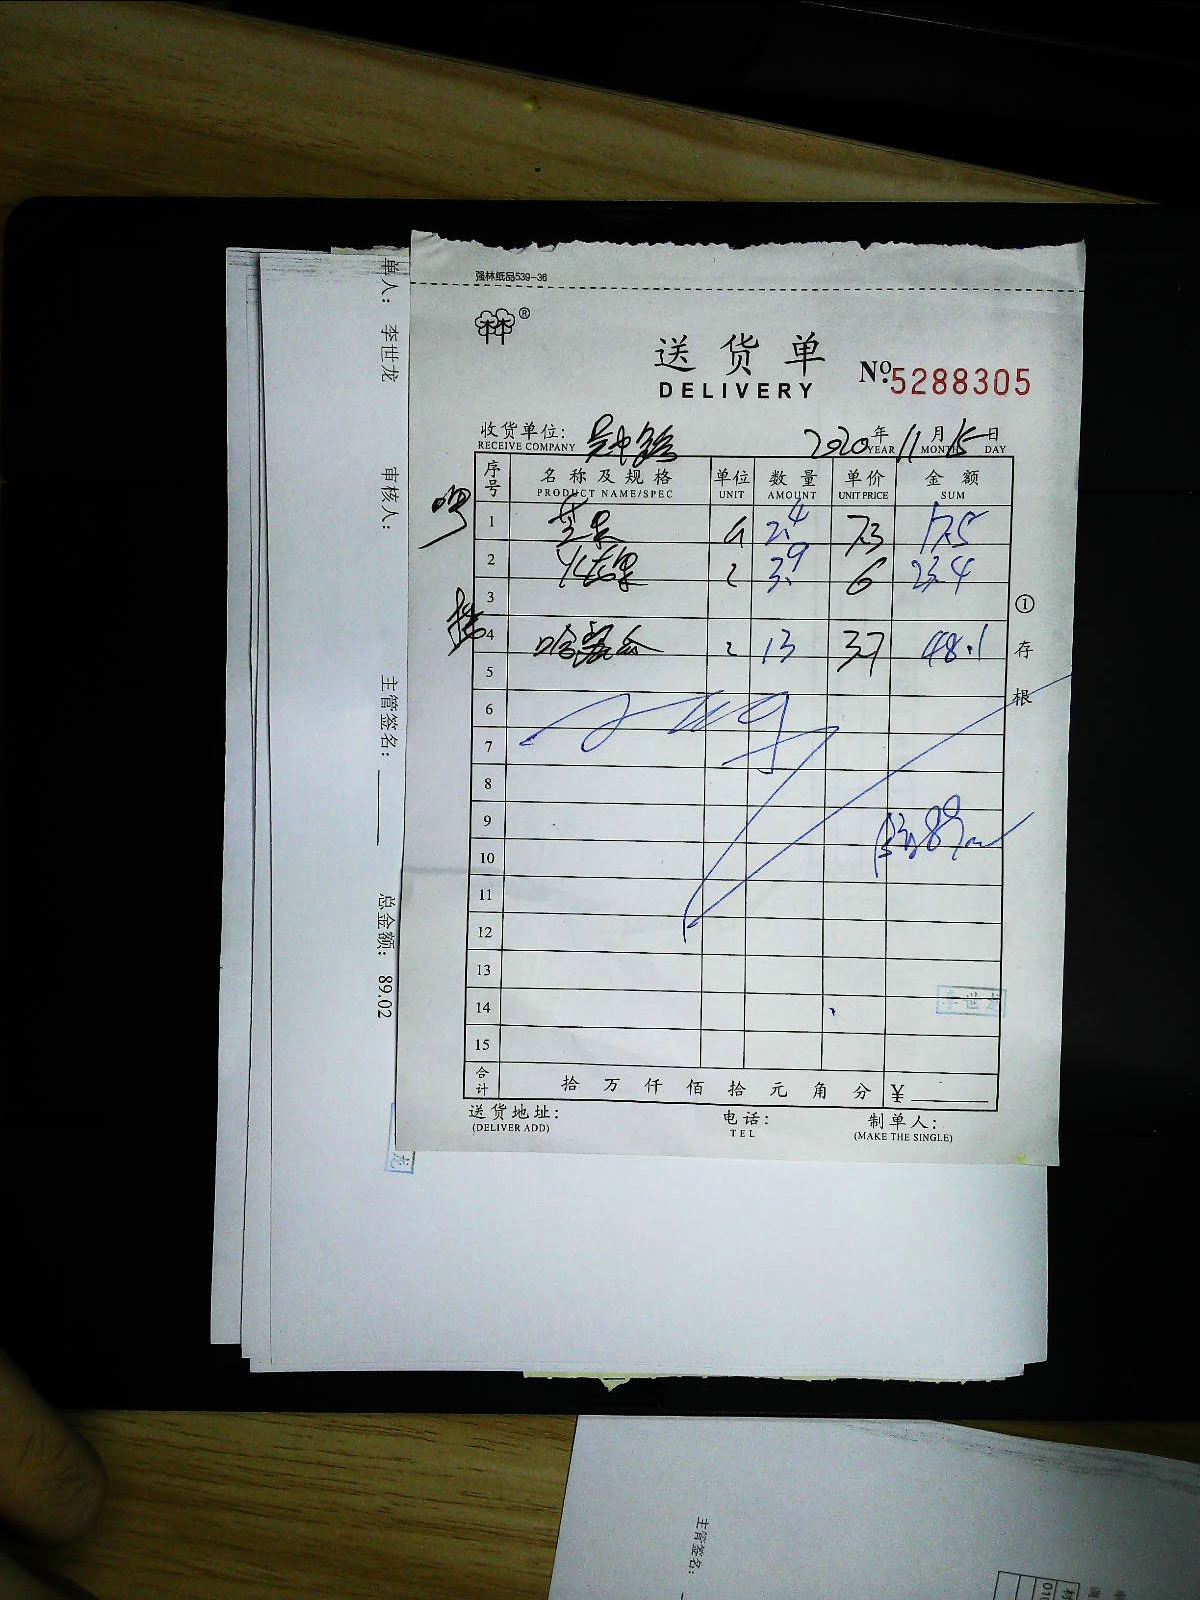 强林纸品539-36
®
送货单
DELIVERY
No. 5288305
收货单位: 吴中路
RECEIVE COMPANY
2020年11月15日
YEAR MONTH DAY
序号 名称及规格 单位 数量 单价 金额
PRODUCT NAME/SPEC UNIT AMOUNT UNIT PRICE SUM
1 芒果 2.4 7.3 17.5
2 火龙果 3.9 6 23.4
3
4 哈密瓜 13 3.7 48.1
5
6
7
8
9
10
11
12
13
14
15
合计 拾万仟佰拾元角分 ¥
① 存根
李世龙
送货地址:
(DELIVER ADD)
电话:
TEL
制单人:
(MAKE THE SINGLE)
单人: 李世龙 审核人: 主管签名: 总金额: 89.02
龙
主管签名: